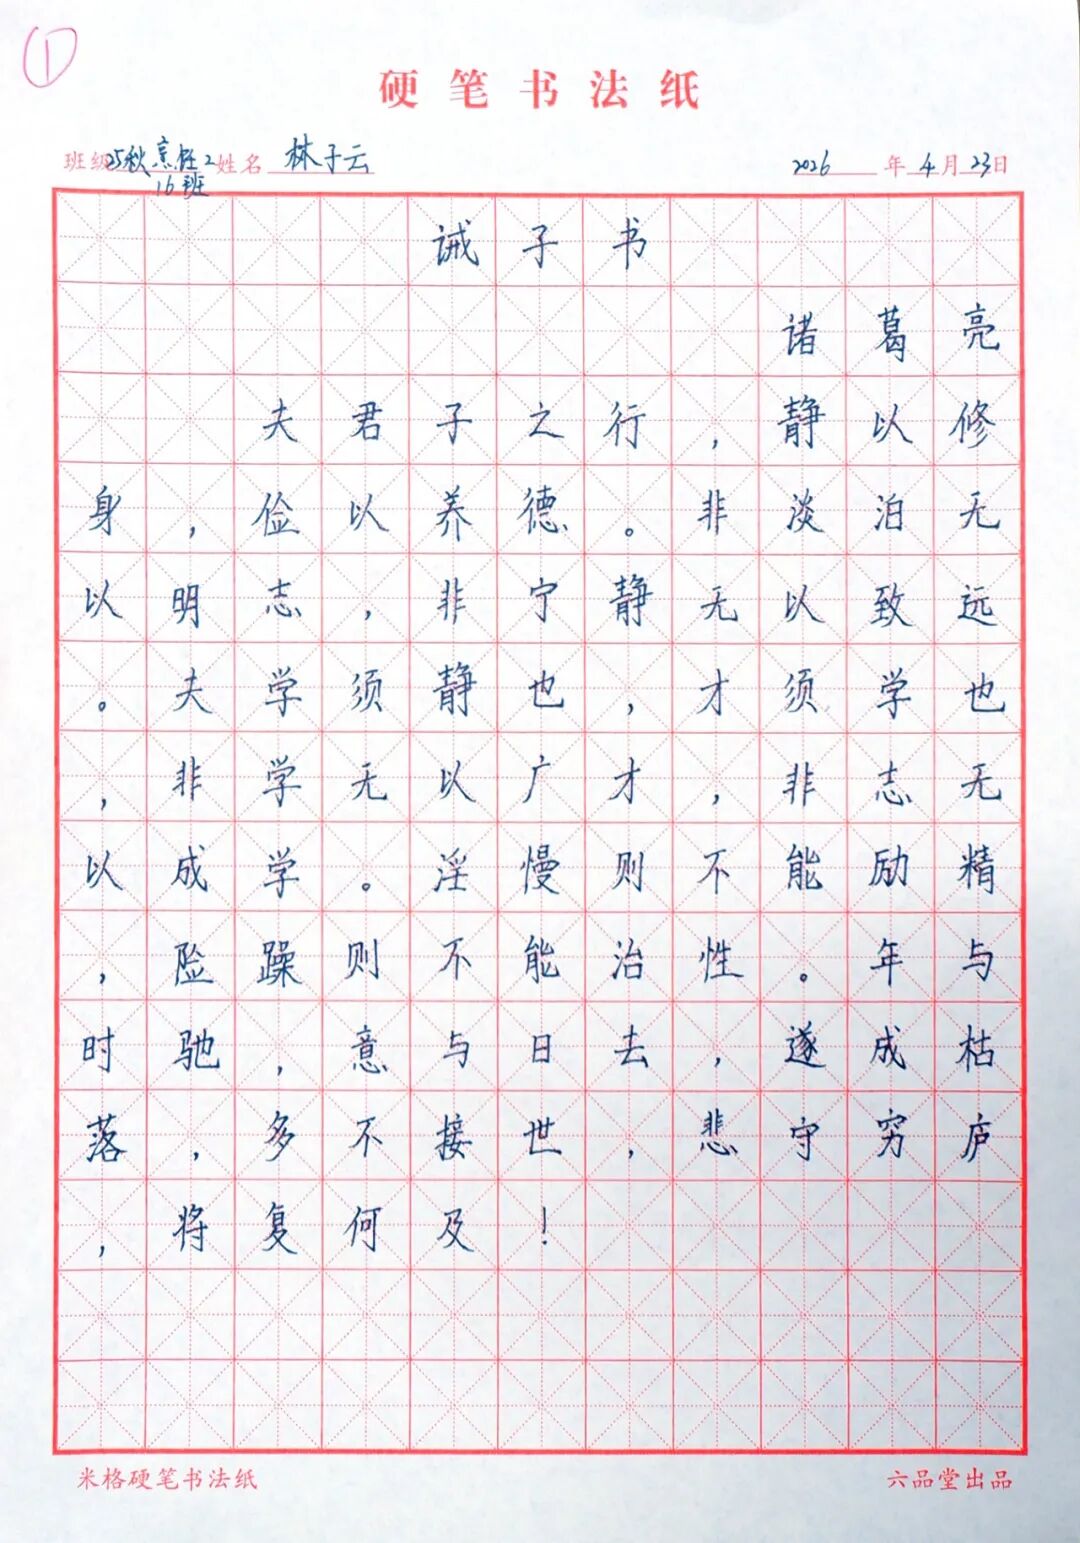 ①
硬笔书法纸
班级25秋烹饪2 姓名 林子云 2026年4月23日
16班
诫子书
诸葛亮
夫君子之行，静以修
身，俭以养德。非淡泊无
以明志，非宁静无以致远
。夫学须静也，才须学也
，非学无以广才，非志无
以成学。淫慢则不能励精
，险躁则不能治性。年与
时驰，意与日去，遂成枯
落，多不接世，悲守穷庐
，将复何及！
米格硬笔书法纸 六品堂出品